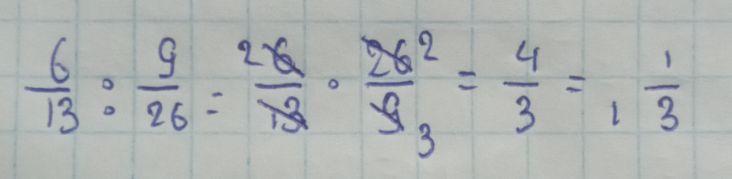 6/13 : 9/26 = 2 6/13 · 26/9 2 3 = 4/3 = 1 1/3